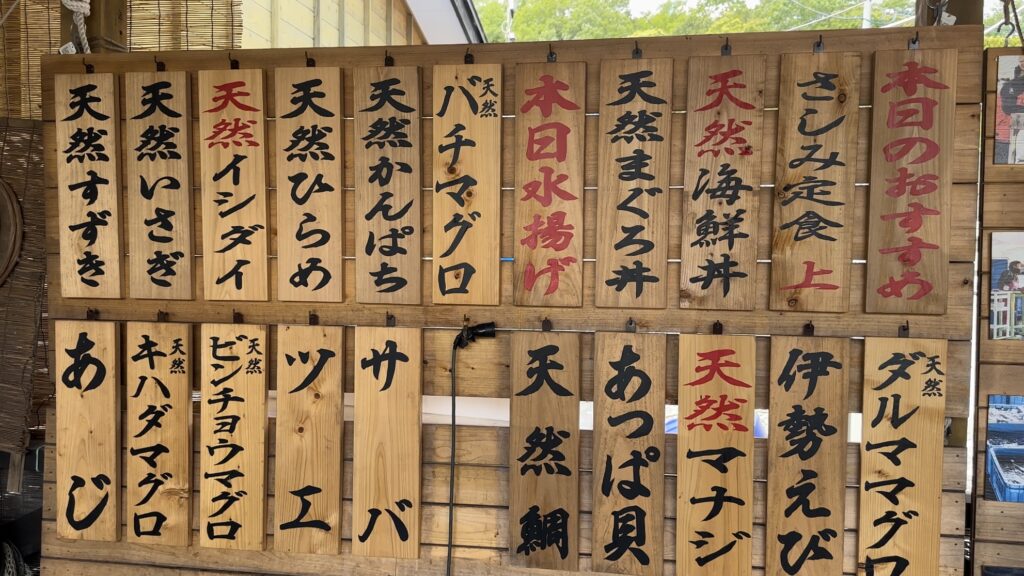 本日のおすすめ
さしみ定食 上
天然海鮮丼
天然まぐろ丼
本日水揚げ
天然バチマグロ
天然かんぱち
天然ひらめ
天然イシダイ
天然いさぎ
天然すずき
天然ダルママグロ
伊勢えび
天然マナジ
あつぱ貝
天然鯛
サバ
ツエ
天然ビンチョウマグロ
天然キハダマグロ
あじ